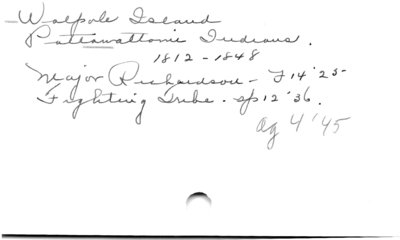 Walpole Island
Pottawattomi Indians.
1812 - 1848
Major Richardson - F 14 '25-
Fighting Tribe. Sp 12 '36.
Ag 4 '45